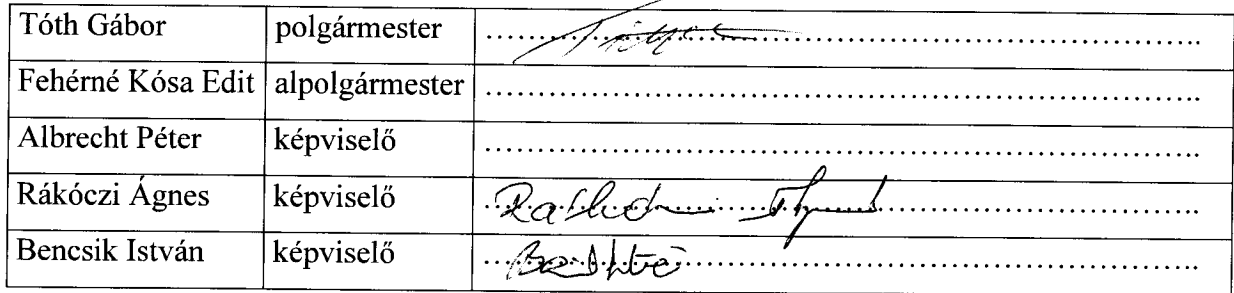 Tóth Gábor polgármester ..........
Fehérné Kósa Edit alpolgármester ..........
Albrecht Péter képviselő ..........
Rákóczi Ágnes képviselő ..........
Bencsik István képviselő ..........